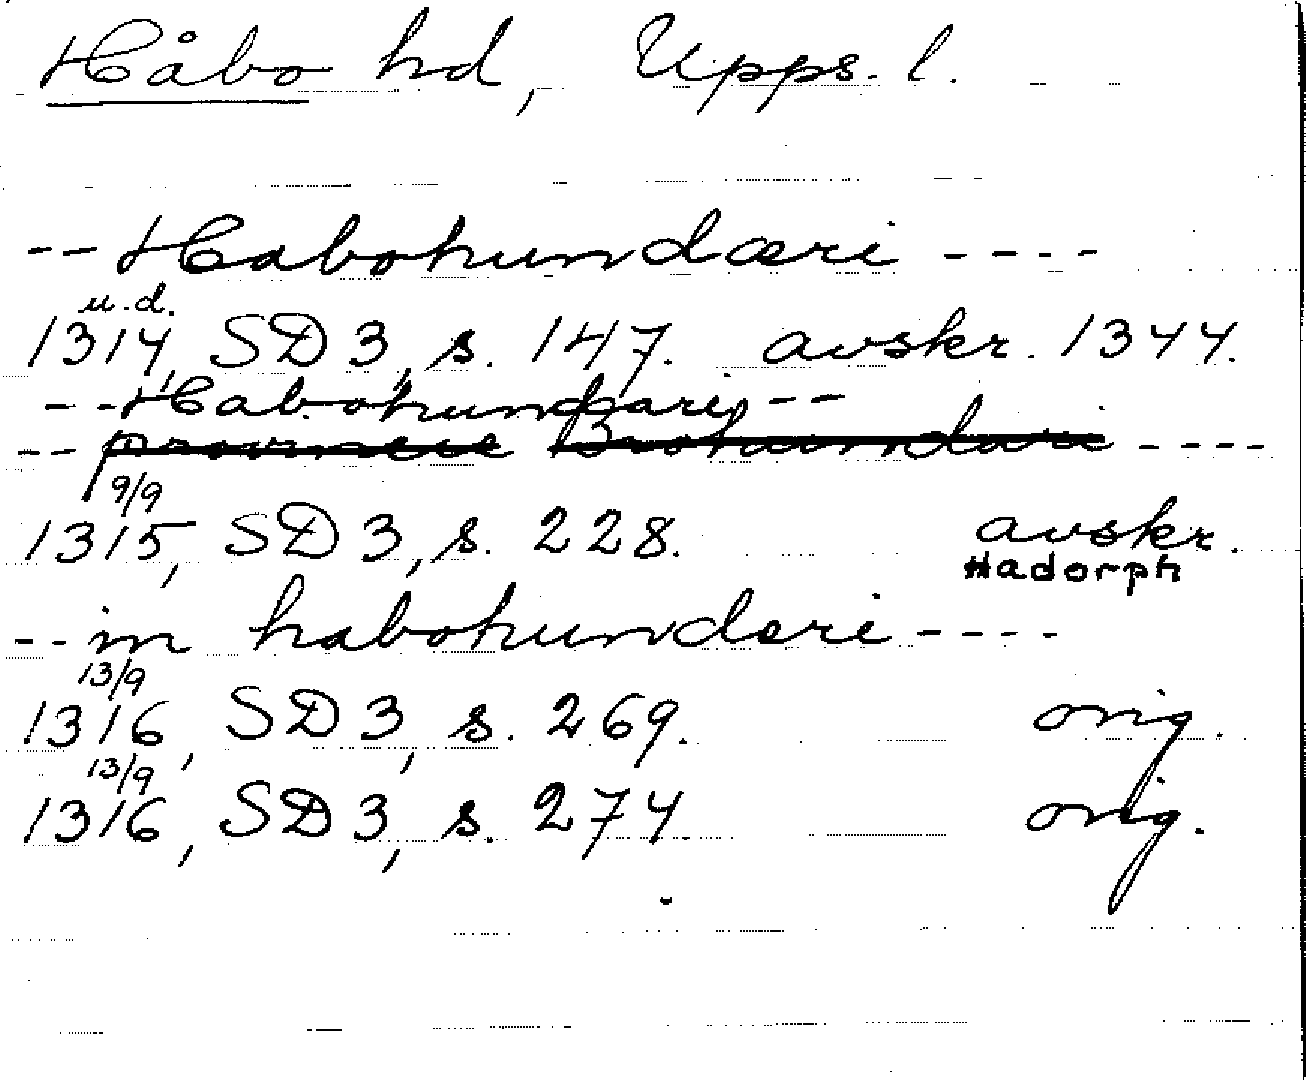 Håbo hd, Upps. l.
-- Habohundæri ----
u.d.
1314, SD 3, s. 147. avskr. 1344.
-- Habohundari --
-- provincie Brohundari ----
9/9
1315, SD 3, s. 228. avskr.
Hadorph
-- in habohunderi ----
13/9
1316, SD 3, s. 269. orig.
13/9
1316, SD 3, s. 274. orig.